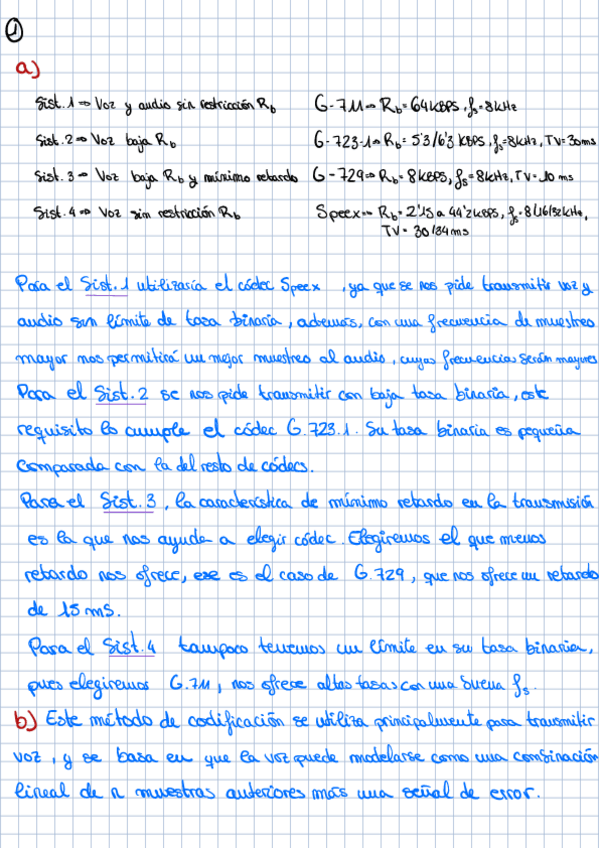 1
a)
Sist. 1 ⇒ Voz y audio sin restricción Rb G-711 ⇒ Rb = 64 KBPS, fs = 8kHz
Sist. 2 ⇒ Voz baja Rb G-723-1 ⇒ Rb = 5'3/6'3 KBPS, fs=8kHz, TV=30ms
Sist. 3 ⇒ Voz baja Rb y mínimo retardo G-729 ⇒ Rb = 8 KBPS, fs = 8kHz, TV=10 ms
Sist. 4 ⇒ Voz sin restricción Rb Speex ⇒ Rb = 2'15 a 44'2 KBPS, fs = 8/16/32 kHz,
TV = 30/34 ms
Para el Sist. 1 utilizaría el códec Speex, ya que se nos pide transmitir voz y
audio sin límite de tasa binaria, además, con una frecuencia de muestreo
mayor nos permitirá un mejor muestreo al audio, cuyas frecuencias serán mayores
Para el Sist. 2 se nos pide transmitir con baja tasa binaria, este
requisito lo cumple el códec G.723.1. Su tasa binaria es pequeña
comparada con la del resto de códecs.
Para el Sist. 3, la característica de mínimo retardo en la transmisión
es la que nos ayuda a elegir códec. Elegiremos el que menos
retardo nos ofrece, ese es el caso de G.729, que nos ofrece un retardo
de 15 ms.
Para el Sist. 4 tampoco tenemos un límite en su tasa binaria,
pues elegiremos G.711, nos ofrece altas tasas con una buena fs.
b) Este método de codificación se utiliza principalmente para transmitir
voz, y se basa en que la voz puede modelarse como una combinación
lineal de n muestras anteriores más una señal de error.